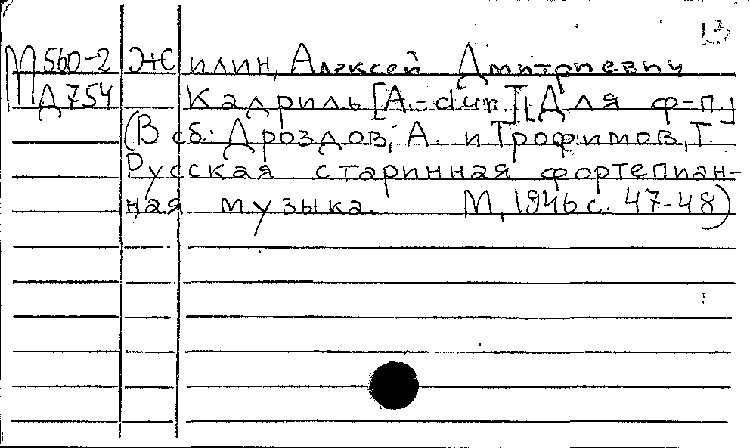 М560-2 Жилин, Алексей Дмитриевич
Д754 Кадриль [A-dur.] [Для ф-п.]
(В сб: Дроздов, А. и Трофимов, Т.
Русская старинная фортепиан-
ная музыка. М, 1946 с. 47-48)